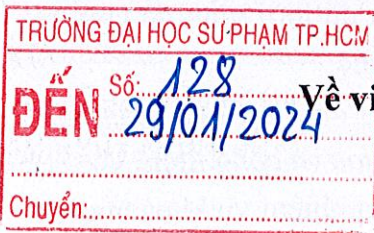 TRƯỜNG ĐẠI HỌC SƯ PHẠM TP.HCM
ĐẾN
Số: 128
29/01/2024
Về vi
Chuyển: